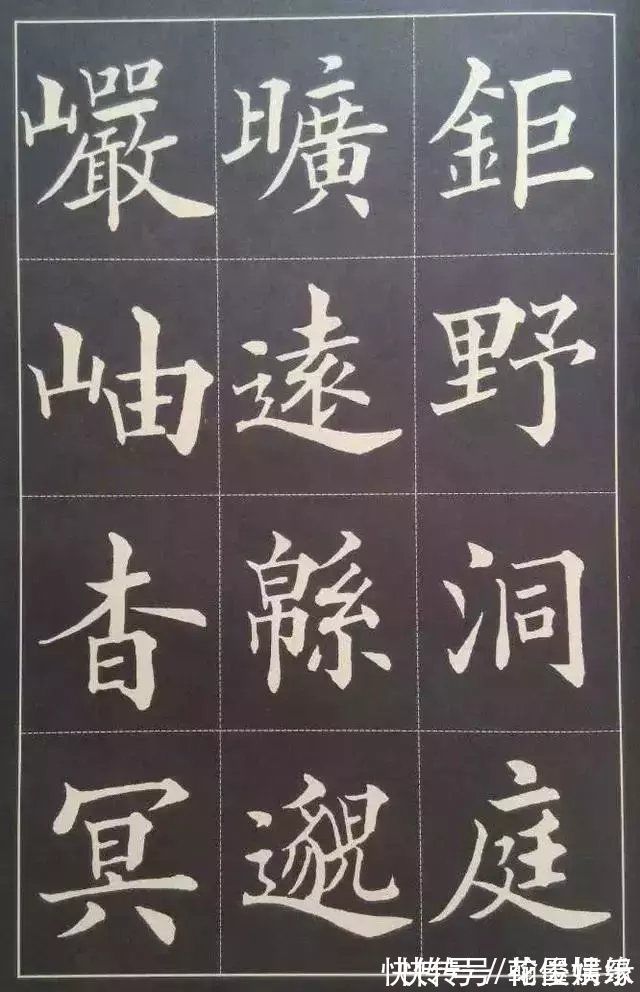 鉅野洞庭
曠遠緜邈
巗岫杳冥
快转号//